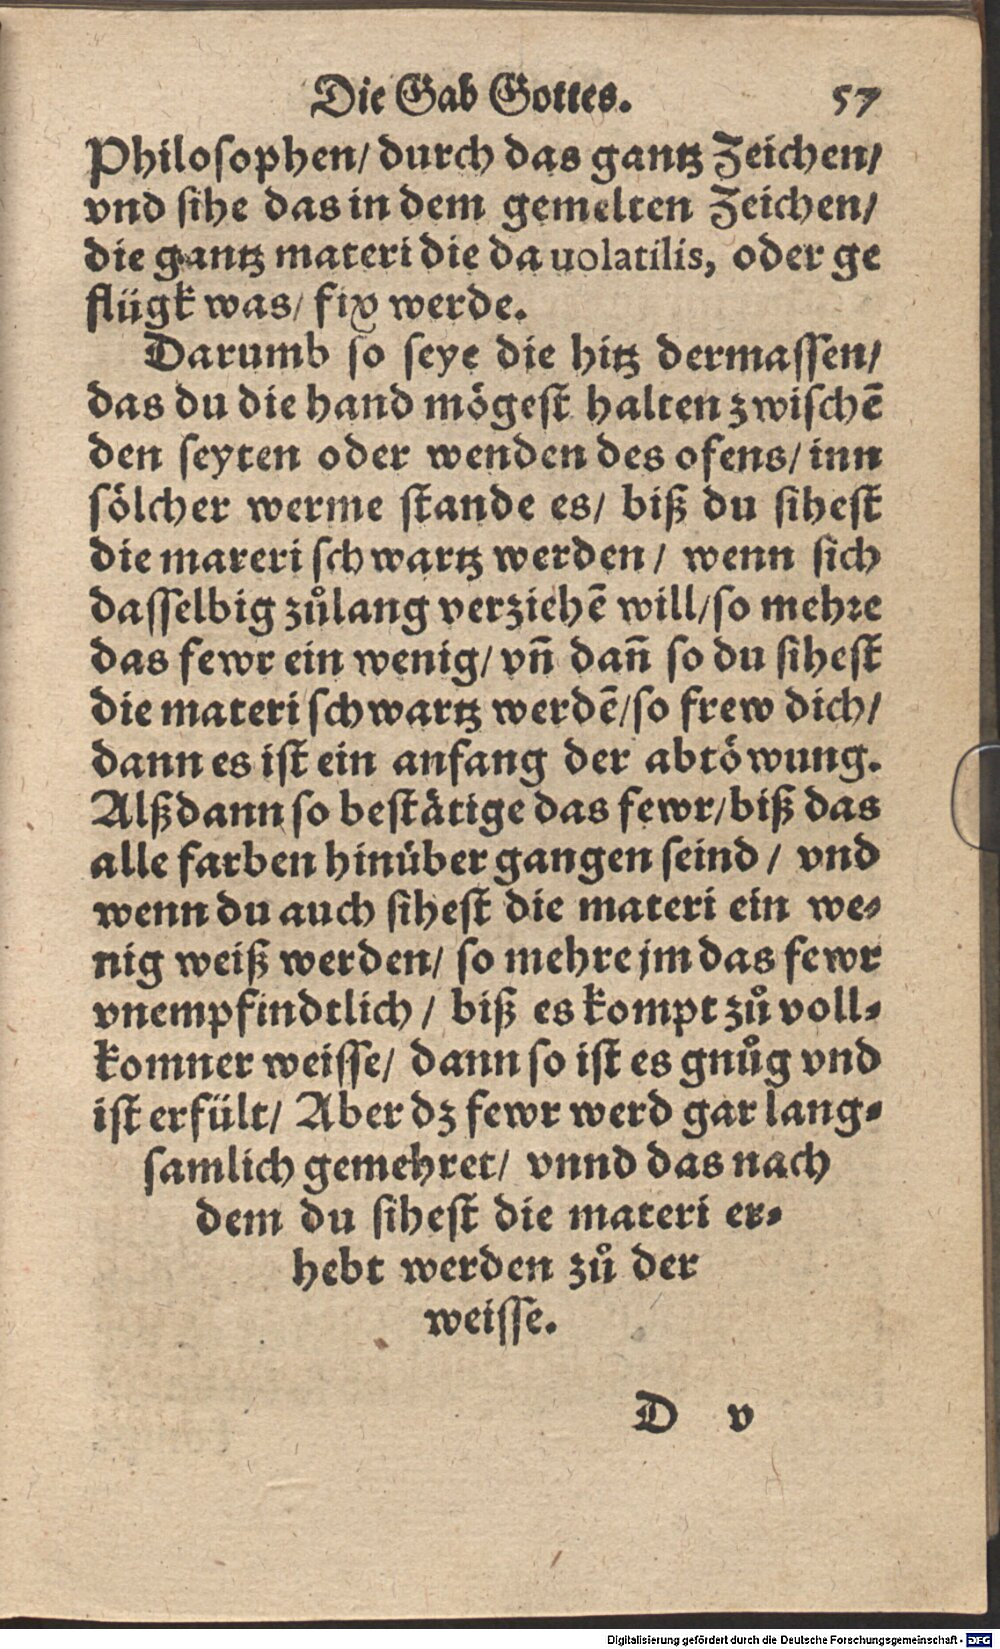 Die Gab Gottes. 57
Philosophen/ durch das gantz Zeichen/
vnd sihe das in dem gemelten Zeichen/
die gantz materi die da uolatilis, oder ge
flügk was/ fix werde.
Darumb so seye die hitz dermassen/
das du die hand mögest halten zwischẽ
den seyten oder wenden des ofens/ inn
sölcher werme stande es/ biß du sihest
die mareri schwartz werden/ wenn sich
dasselbig zůlang verziehẽ will/so mehre
das fewr ein wenig/ vñ dañ so du sihest
die materi schwartz werdẽ/so frew dich/
dann es ist ein anfang der abtöwung.
Alßdann so bestätige das fewr/biß das
alle farben hinüber gangen seind/ vnd
wenn du auch sihest die materi ein we⸗
nig weiß werden/ so mehre jm das fewr
vnempfindtlich/ biß es kompt zů voll⸗
komner weisse/ dann so ist es gnůg vnd
ist erfült/ Aber dz fewr werd gar lang⸗
samlich gemehret/ vnnd das nach
dem du sihest die materi er⸗
hebt werden zů der
weisse.
D v
Digitalisierung gefördert durch die Deutsche Forschungsgemeinschaft - DFG